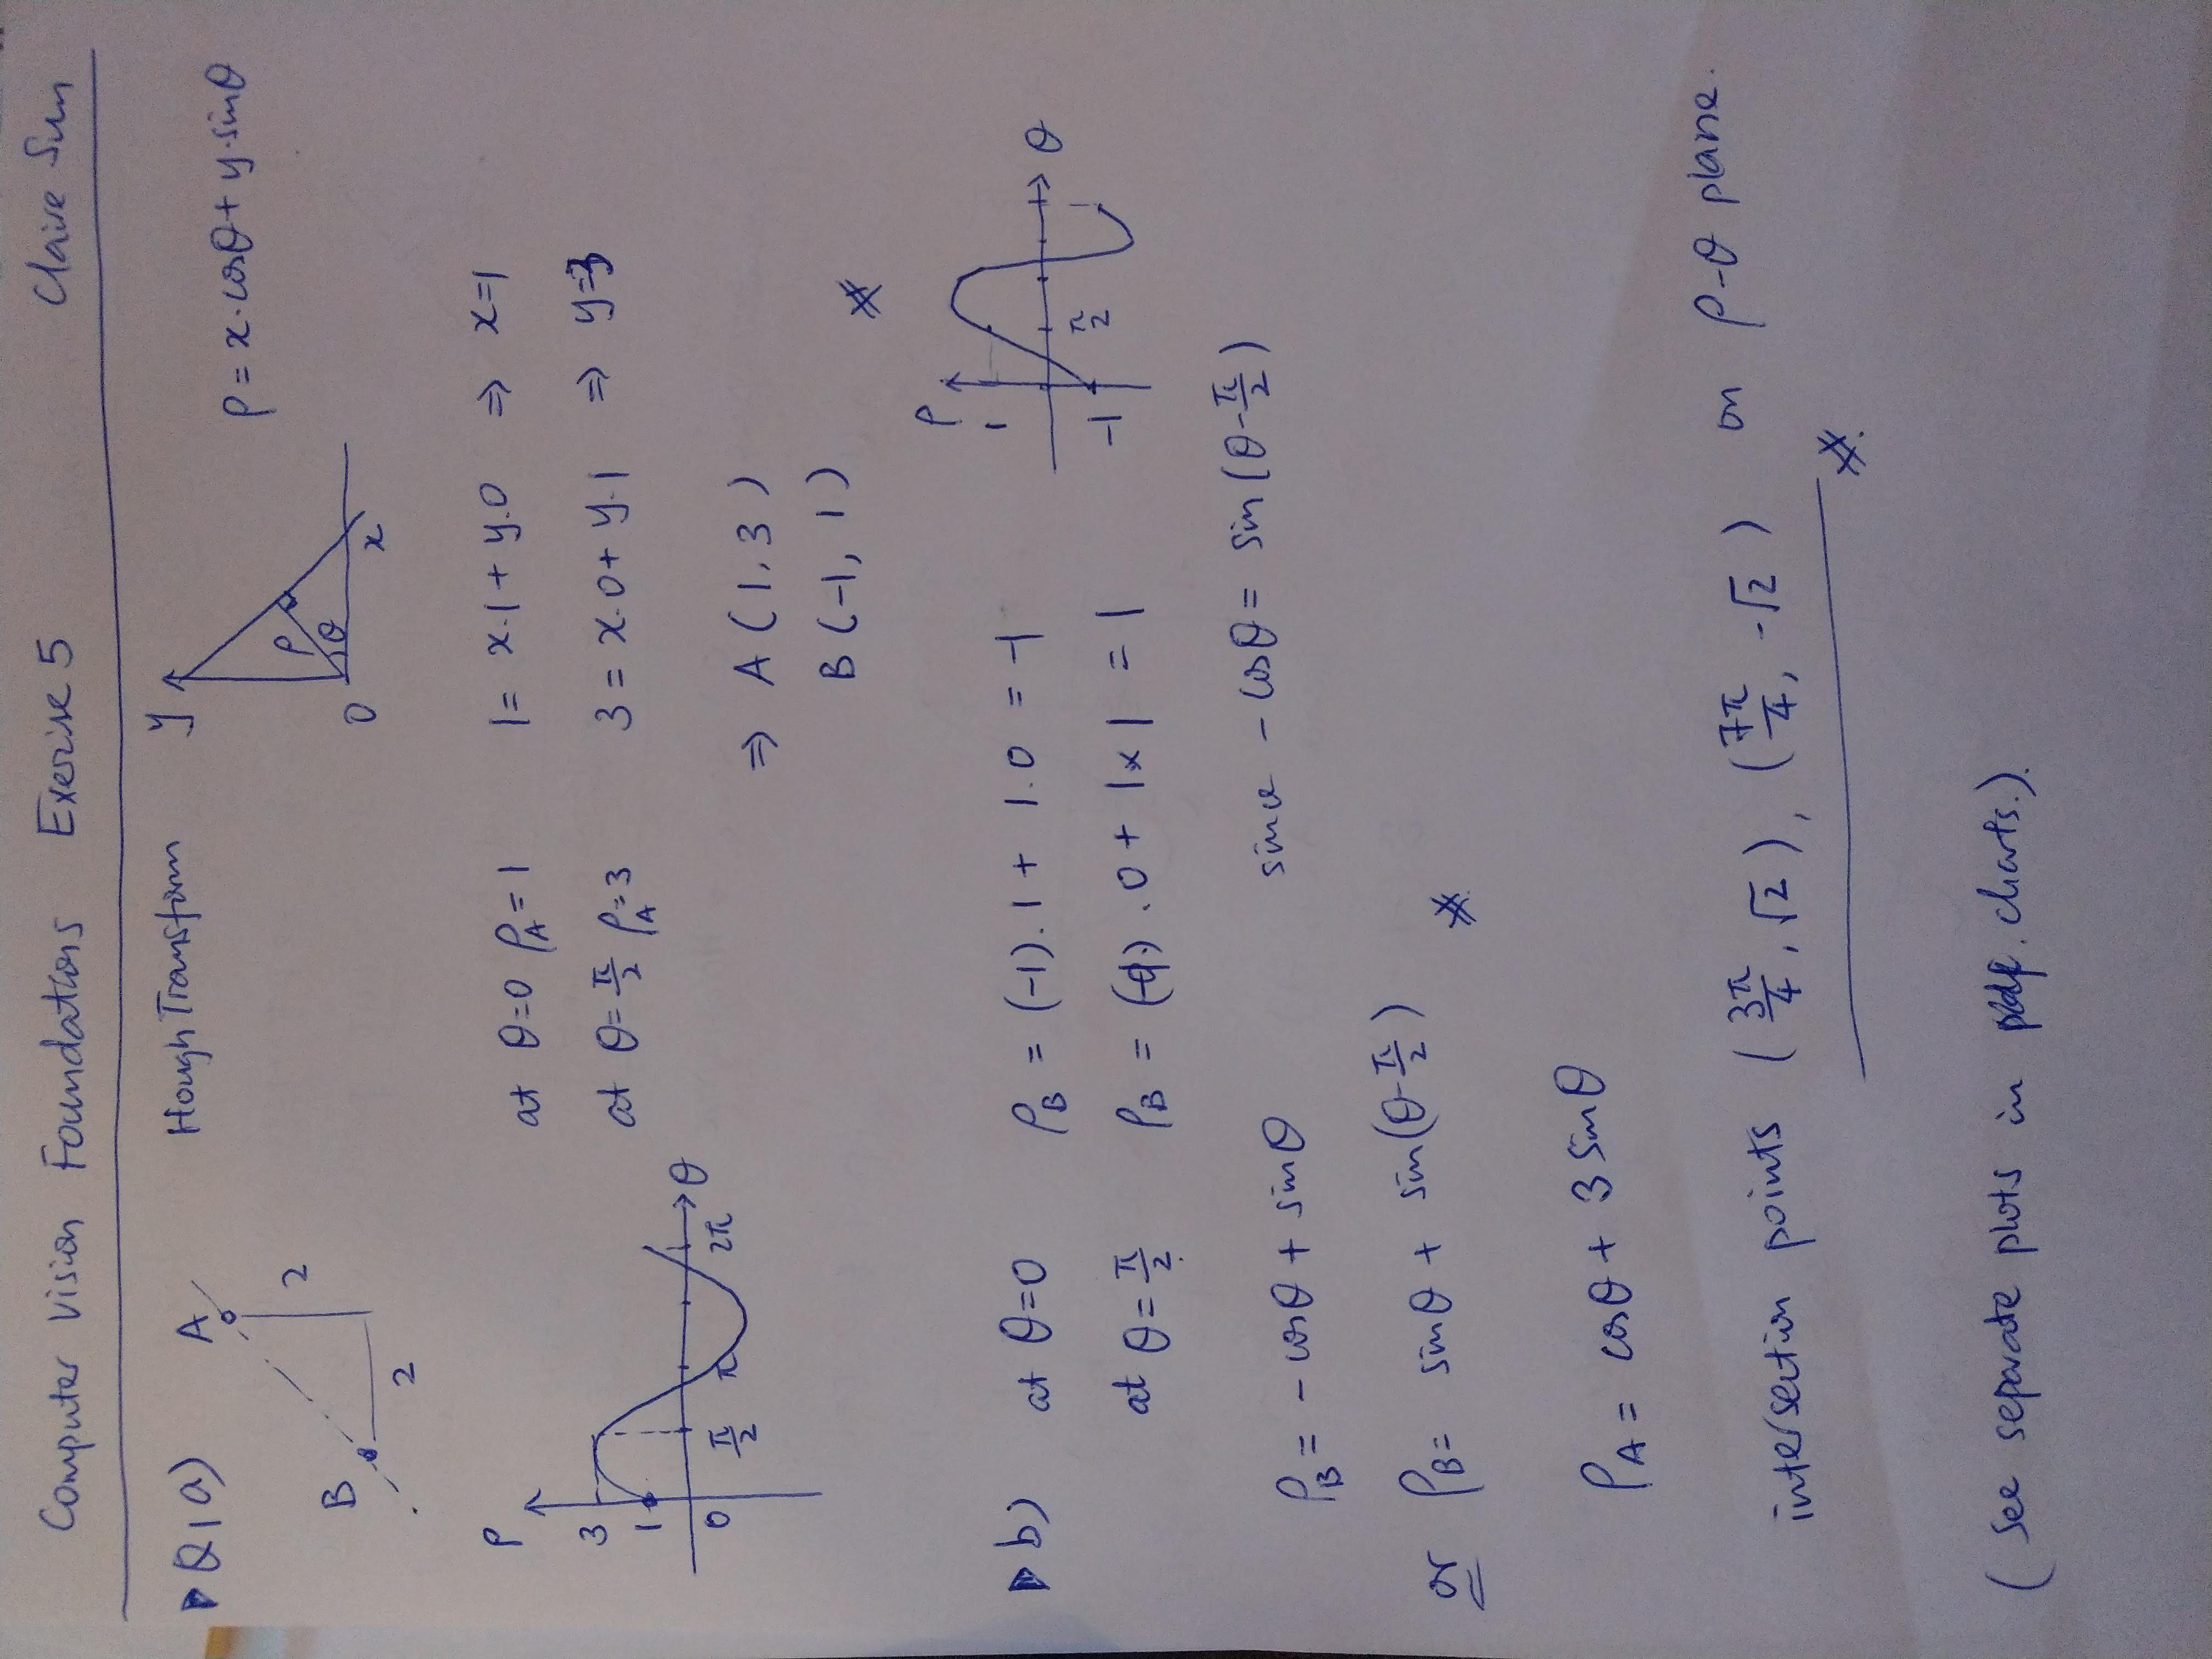 Computer Vision Foundations Exerise 5 Claire Sun
Q1 a) Hough Transform
A
B
2
2
y
ρ
θ
0
x
ρ = x·cosθ + y·sinθ
ρ
3
1
0
π/2
π
2π
θ
at θ=0 ρA=1 1= x.1 + y.0 ⇒ x=1
at θ=π/2 ρA=3 3 = x.0 + y.1 ⇒ y=3
⇒ A (1, 3)
B (-1, 1)
ρ
1
-1
π/2
θ
b) at θ=0 ρB = (-1).1 + 1.0 = -1
at θ=π/2 ρB = (-1).0 + 1×1 = 1
ρB = -cosθ + sinθ since -cosθ = sin(θ-π/2)
or ρB= sinθ + sin(θ-π/2)
ρA = cosθ + 3 sinθ
intersection points (3π/4, √2), (7π/4, -√2) on ρ-θ plane.
(see separate plots in pdf. charts.).